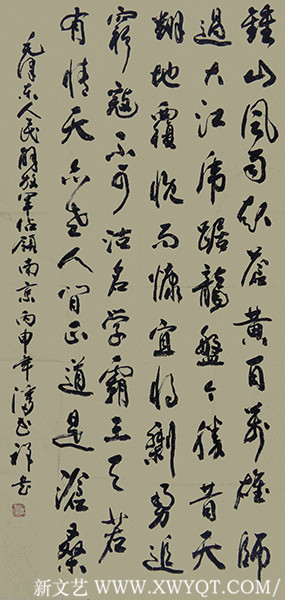 鍾山風雨起蒼黄百萬雄師
過大江虎踞龍盤今勝昔天
翻地覆慨而慷宜将剩勇追
窮寇不可沽名学霸王天若
有情天亦老人间正道是滄桑
毛澤东人民解放军佔領南京丙申年
新文艺 WWW.XWYQT.COM/